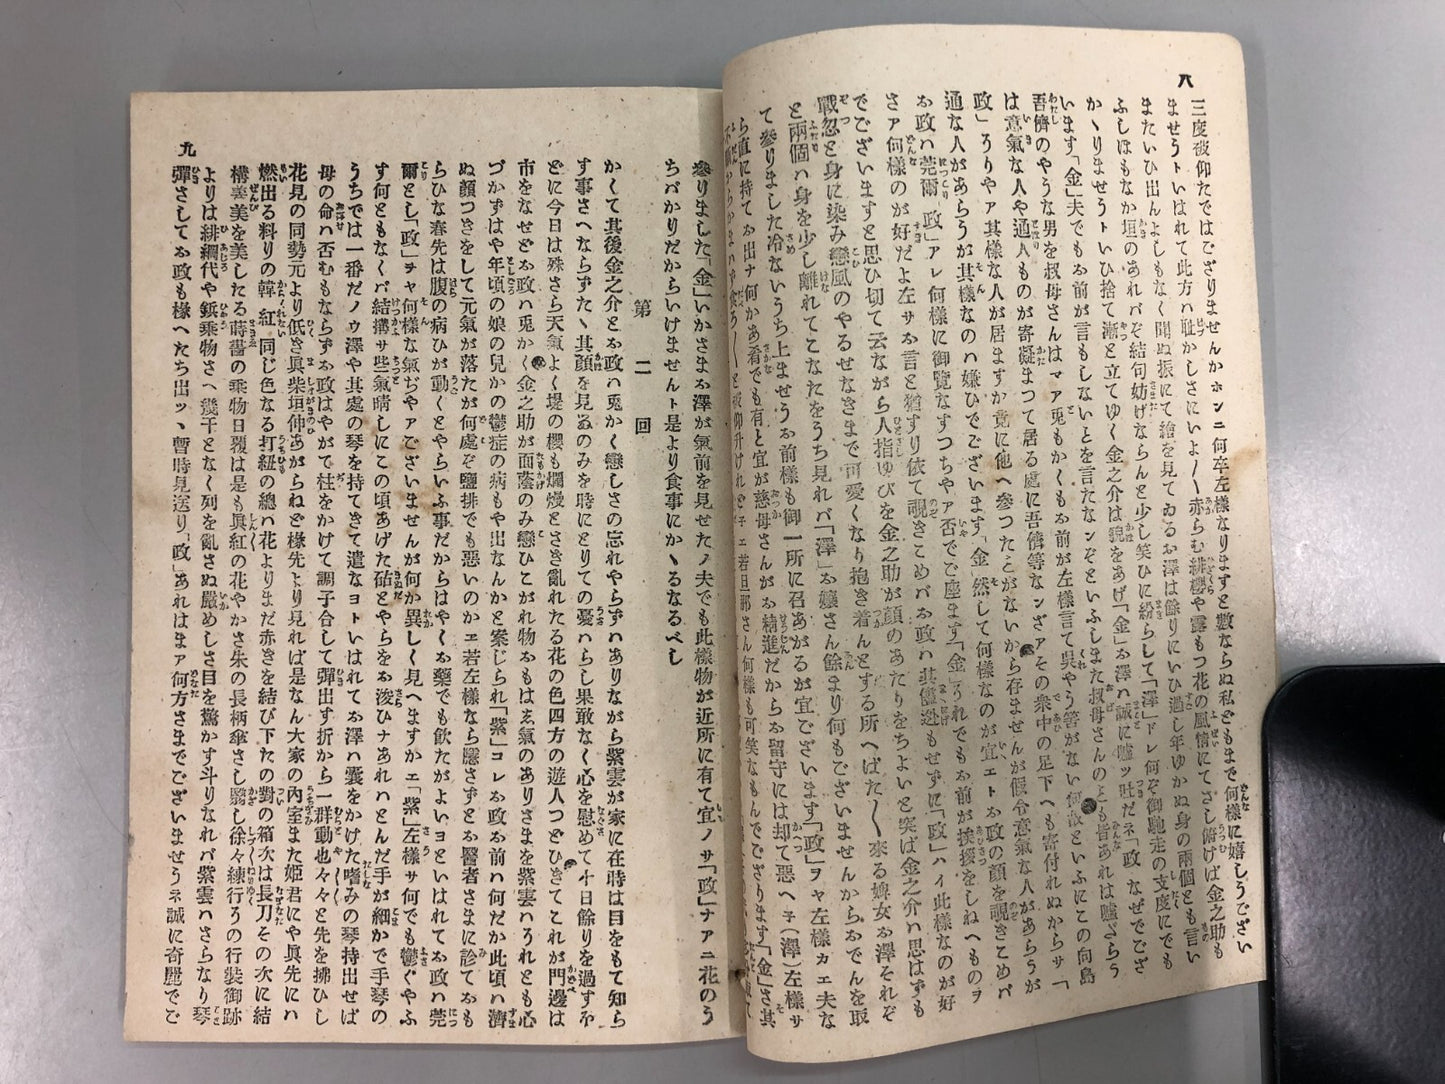 八
三度破仰たではござりませんかホンニ何卒左樣なりますと數ならぬ私どもまで何樣に嬉しうござい
ませうトいはれて此方ハ耻かしさにいよ〳〵赤らむ緋櫻や露もつ花の風情にてさし俯けば金之助も
またいひ出んよしもなく聞ぬ振にて繪を見てゐるお澤は餘りにいひ過し年ゆかぬ身の兩個とも言い
ふしほもなか垣のあれバぞ結句妨げならんと少し笑ひに紛らして「澤」ドレ何ぞ御馳走の支度にでも
かゝりませうトいひ捨て漸と立てゆく金之介は貌をあげ「金」お澤ハ誠に嘘ッ吐だネ「政 なぜでござ
います「金」夫でもお前が言もしないとを言たなンぞといふしまた叔母さんのとも皆あれは嘘ざらう
吾儕のやうな男を叔母さんはマア兎もかくもお前が左樣言て呉やう筈がない何故といふにこの向島
は意氣な人や通人ものが寄凝まつて居る處に吾儕等なンざアその衆中の足下へも寄付れぬからサ「
政」うりやア其樣な人が居ますが竟に他へ參つたとがないから存ませんが假令意氣な人があらうが
通な人があらうが其樣なのハ嫌ひでございます「金 然して何樣なのが宜エトお政の顏を覗きこめバ
お政ハ莞爾 政」アレ何樣に御覽なすつちやア否でご座ます「金」うれでもお前が挨拶をしねへものヲ
さア何樣のが好だよ左サお言と猶すり依て覗きこめバお政ハ其儘迯もせずに「政」ハイ此樣なのが好
でございますと思ひ切て云ながら人指ゆびを金之助が顏のあたりをちよいと突ば金之介ハ思はずも
戰忽と身に染み戀風のやるせなきまで可愛くなり抱き着んとする所へばた〳〵來る婢女お澤それぞ
と兩個ハ身を少し離れてこなたをうち見れバ「澤」お孃さん餘まり何もございませんからおでんを取
て參りました冷ないうち上ませうお前樣も御一所に召あがるが宜ございます「政」ヲヤ左樣カエ夫な
ら直に持てお出ナ何かあ肴でも有と宜が慈母さんがお精進だからお留守には却て惡へ子(澤)左樣サ
參りました「金」いかさまお澤が氣前を見せたノ夫でも此樣物が近所に有て宜ノサ「政」ナアニ花のう
ちバかりだからいけませんト是より食事にかゝるなるべし
第二回
かくて其後金之介とお政ハ兎かく戀しさの忘れやらずハありながら紫雲が家に在時は目をもて知ら
す事さへならずたゝ其顏を見るのみを時にとりての憂ハらし果敢なく心を慰めて十日餘りを過すほ
どに今日は殊さら天氣よく堤の櫻も爛熳とさき亂れたる花の色四方の遊人つどひきてこれが門邊は
市をなせどお政ハ兎かく金之助が面蔭のみ戀ひこがれ物おもはゑ氣のありさまを紫雲ハうれとも心
づかずはや年頃の娘の兒かの鬱症の病もや出なんかと案じられ「紫」コレお政お前ハ何だか此頃ハ濟
ぬ顏つきをして元氣が落たが何處ぞ鹽排でも惡いのかエ若左樣なら隱さずとお醫者さまに診ておも
らひな春先は腹の病ひが動くとやらいふ事だからはやくお藥でも飮たがよいヨといはれてお政ハ莞
爾とし「政」ヲヤ何樣な氣ぢやアございませんが何か異しく見へますかエ「紫」左樣サ何でも鬱ぐやふ
す何ともなくバ結搆サ些氣晴しにこの頃あげた砧とやらをお浚ひナあれハとんだ手が細かで手琴の
うちでは一番だノウ澤や其處の琴を持てきて遣なヨトいはれてお澤ハ嚢をかけた嗜みの琴持出せば
母の命ハ否むもならずお政はやがて柱をかけて調子合して彈出す折から一群動也々々と先を拂ひし
花見の同勢元より低き眞柴垣伸あがらねど椽先より見れば是なん大家の內室また姫君にや眞先にハ
燃出る料りの韓紅同じ色なる打紐の總ハ花よりまだ赤きを結び下たの對の箱次は長刀その次に結
搆善美を美したる蒔薔の乘物日覆は是も眞紅の花やかさ朱の長柄傘さし翳し徐々練行ろの行裝御跡
よりは緋綱代や鋲乘物さへ幾千となく列を亂さぬ嚴めしさ目を驚かす斗りなれバ紫雲ハさらなり琴
彈さしてお政も椽へたち出ッヽ暫時見送り「政」あれはまア何方さまでございませうネ誠に奇麗でご
九